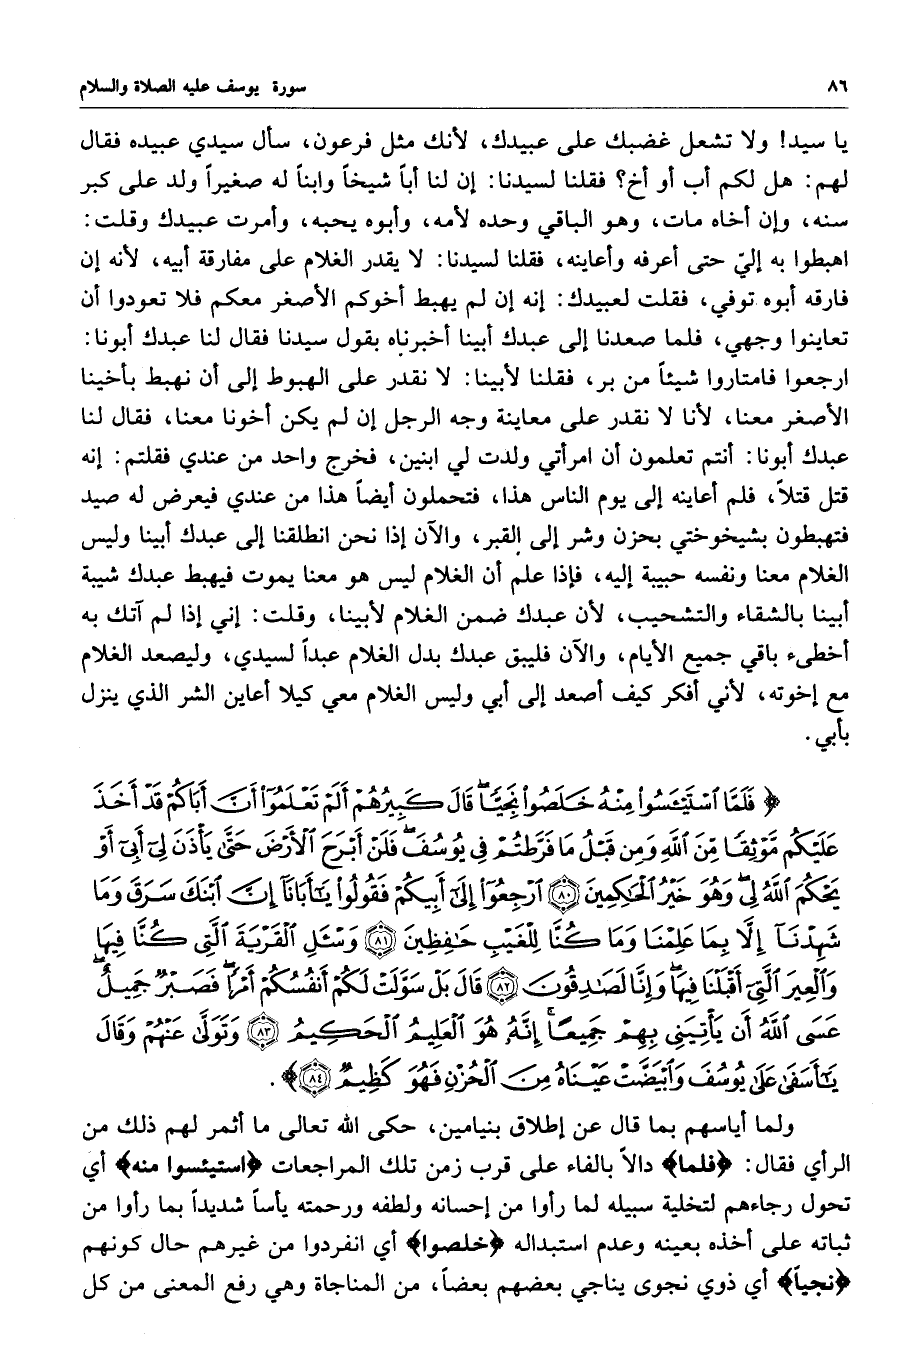 ٨٦ سورة يوسف عليه الصلاة والسلام
يا سيد! ولا تشعل غضبك على عبيدك، لأنك مثل فرعون، سأل سيدي عبيده فقال
لهم: هل لكم أب أو أخ؟ فقلنا لسيدنا: إن لنا أباً شيخاً وابناً له صغيراً ولد على كبر
سنه، وإن أخاه مات، وهو الباقي وحده لأمه، وأبوه يحبه، وأمرت عبيدك وقلت:
اهبطوا به إليّ حتى أعرفه وأعاينه، فقلنا لسيدنا: لا يقدر الغلام على مفارقة أبيه، لأنه إن
فارقه أبوه توفي، فقلت لعبيدك: إنه إن لم يهبط أخوكم الأصغر معكم فلا تعودوا أن
تعاينوا وجهي، فلما صعدنا إلى عبدك أبينا أخبرناه بقول سيدنا فقال لنا عبدك أبونا:
ارجعوا فامتاروا شيئاً من بر، فقلنا لأبينا: لا نقدر على الهبوط إلى أن نهبط بأخينا
الأصغر معنا، لأنا لا نقدر على معاينة وجه الرجل إن لم يكن أخونا معنا، فقال لنا
عبدك أبونا: أنتم تعلمون أن امرأتي ولدت لي ابنين، فخرج واحد من عندي فقلتم: إنه
قتل قتلاً، فلم أعاينه إلى يوم الناس هذا، فتحملون أيضاً هذا من عندي فيعرض له صيد
فتهبطون بشيخوختي بحزن وشر إلى القبر، والآن إذا نحن انطلقنا إلى عبدك أبينا وليس
الغلام معنا ونفسه حبيبة إليه، فإذا علم أن الغلام ليس هو معنا يموت فيهبط عبدك شيبة
أبينا بالشقاء والتشحيب، لأن عبدك ضمن الغلام لأبينا، وقلت: إني إذا لم آتك به
أخطىء باقي جميع الأيام، والآن فليبق عبدك بدل الغلام عبداً لسيدي، وليصعد الغلام
مع إخوته، لأني أفكر كيف أصعد إلى أبي وليس الغلام معي كيلا أعاين الشر الذي ينزل
بأبي.
﴿ فَلَمَّا ٱسْتَيْـَٔسُوا۟ مِنْهُ خَلَصُوا۟ نَجِيًّا ۖ قَالَ كَبِيرُهُمْ أَلَمْ تَعْلَمُوٓا۟ أَنَّ أَبَاكُمْ قَدْ أَخَذَ
عَلَيْكُم مَّوْثِقًا مِّنَ ٱللَّهِ وَمِن قَبْلُ مَا فَرَّطتُمْ فِى يُوسُفَ ۖ فَلَنْ أَبْرَحَ ٱلْأَرْضَ حَتَّىٰ يَأْذَنَ لِىٓ أَبِىٓ أَوْ
يَحْكُمَ ٱللَّهُ لِى ۖ وَهُوَ خَيْرُ ٱلْحَـٰكِمِينَ ﴿٨٠﴾ ٱرْجِعُوٓا۟ إِلَىٰٓ أَبِيكُمْ فَقُولُوا۟ يَـٰٓأَبَانَآ إِنَّ ٱبْنَكَ سَرَقَ وَمَا
شَهِدْنَآ إِلَّا بِمَا عَلِمْنَا وَمَا كُنَّا لِلْغَيْبِ حَـٰفِظِينَ ﴿٨١﴾ وَسْـَٔلِ ٱلْقَرْيَةَ ٱلَّتِى كُنَّا فِيهَا
وَٱلْعِيرَ ٱلَّتِىٓ أَقْبَلْنَا فِيهَا ۖ وَإِنَّا لَصَـٰدِقُونَ ﴿٨٢﴾ قَالَ بَلْ سَوَّلَتْ لَكُمْ أَنفُسُكُمْ أَمْرًا ۖ فَصَبْرٌ جَمِيلٌ ۖ
عَسَى ٱللَّهُ أَن يَأْتِيَنِى بِهِمْ جَمِيعًا ۚ إِنَّهُۥ هُوَ ٱلْعَلِيمُ ٱلْحَكِيمُ ﴿٨٣﴾ وَتَوَلَّىٰ عَنْهُمْ وَقَالَ
يَـٰٓأَسَفَىٰ عَلَىٰ يُوسُفَ وَٱبْيَضَّتْ عَيْنَاهُ مِنَ ٱلْحُزْنِ فَهُوَ كَظِيمٌ ﴿٨٤﴾ ﴾.
ولما أياسهم بما قال عن إطلاق بنيامين، حكى الله تعالى ما أثمر لهم ذلك من
الرأي فقال: ﴿فلما﴾ دالاً بالفاء على قرب زمن تلك المراجعات ﴿استيئسوا منه﴾ أي
تحول رجاءهم لتخلية سبيله لما رأوا من إحسانه ولطفه ورحمته يأساً شديداً بما رأوا من
ثباته على أخذه بعينه وعدم استبداله ﴿خلصوا﴾ أي انفردوا من غيرهم حال كونهم
﴿نجياً﴾ أي ذوي نجوى يناجي بعضهم بعضاً، من المناجاة وهي رفع المعنى من كل